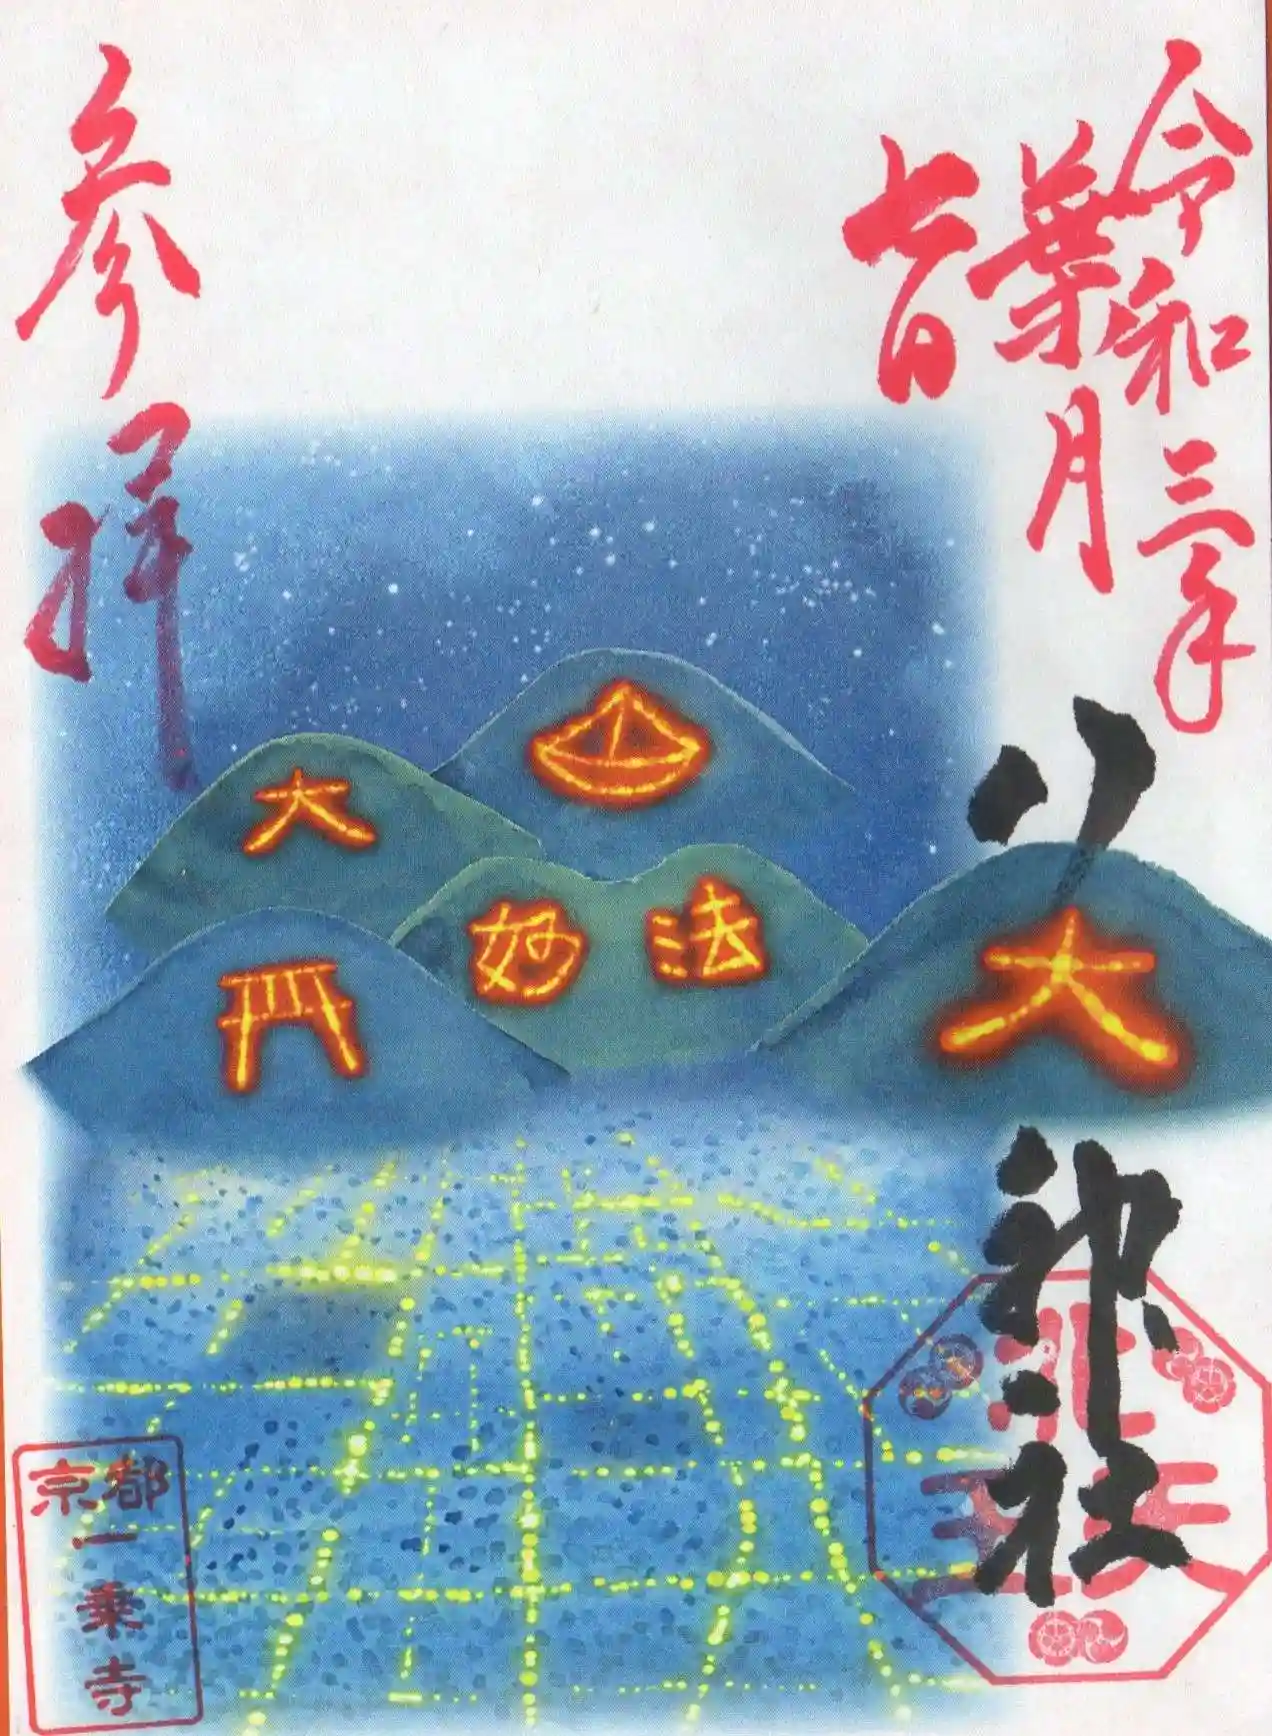 令和三年
葉月
参拝
八大神社
大
妙法
京都
一乗寺